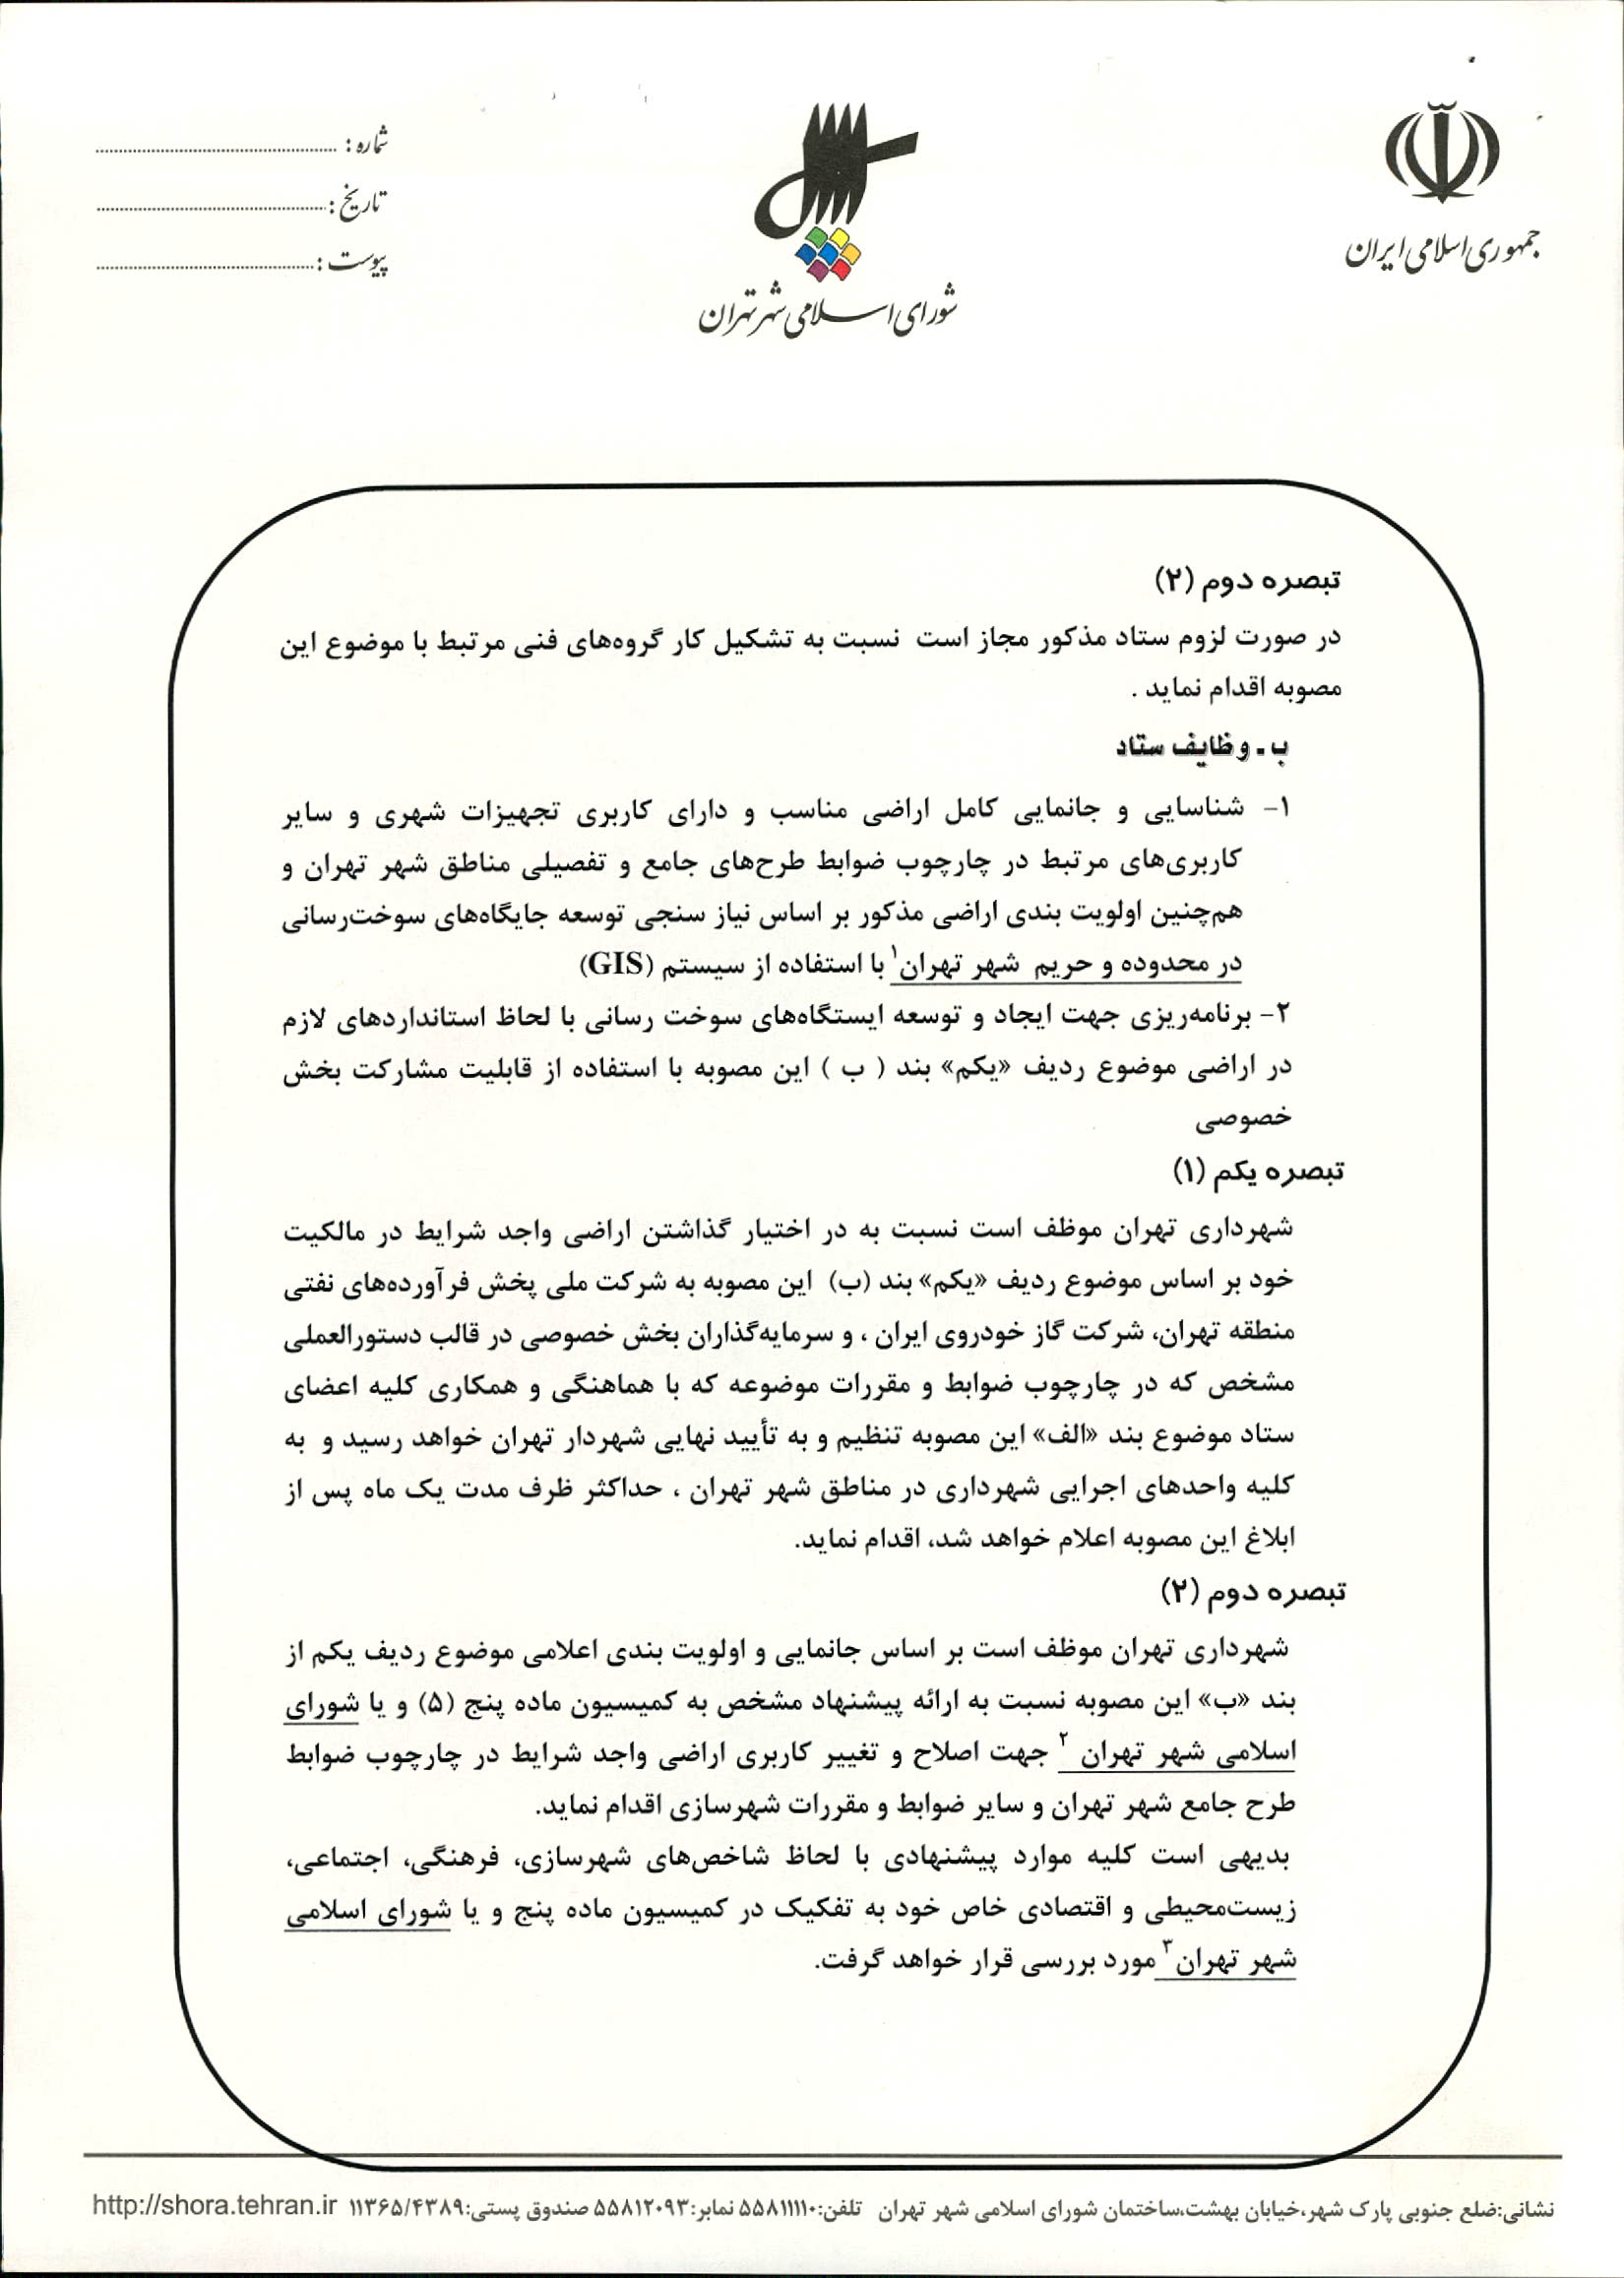 جمهوری اسلامی ایران
شورای اسلامی شهر تهران
شماره :
تاریخ :
پیوست :
تبصره دوم (۲)
در صورت لزوم ستاد مذکور مجاز است نسبت به تشکیل کار گروه‌های فنی مرتبط با موضوع این
مصوبه اقدام نماید .
ب ـ وظایف ستاد
۱- شناسایی و جانمایی کامل اراضی مناسب و دارای کاربری تجهیزات شهری و سایر
کاربری‌های مرتبط در چارچوب ضوابط طرح‌های جامع و تفصیلی مناطق شهر تهران و
هم‌چنین اولویت بندی اراضی مذکور بر اساس نیاز سنجی توسعه جایگاه‌های سوخت‌رسانی
در محدوده و حریم شهر تهران۱ با استفاده از سیستم (GIS)
۲- برنامه‌ریزی جهت ایجاد و توسعه ایستگاه‌های سوخت رسانی با لحاظ استانداردهای لازم
در اراضی موضوع ردیف «یکم» بند ( ب ) این مصوبه با استفاده از قابلیت مشارکت بخش
خصوصی
تبصره یکم (۱)
شهرداری تهران موظف است نسبت به در اختیار گذاشتن اراضی واجد شرایط در مالکیت
خود بر اساس موضوع ردیف «یکم» بند (ب) این مصوبه به شرکت ملی پخش فرآورده‌های نفتی
منطقه تهران، شرکت گاز خودروی ایران ، و سرمایه‌گذاران بخش خصوصی در قالب دستورالعملی
مشخص که در چارچوب ضوابط و مقررات موضوعه که با هماهنگی و همکاری کلیه اعضای
ستاد موضوع بند «الف» این مصوبه تنظیم و به تأیید نهایی شهردار تهران خواهد رسید و به
کلیه واحدهای اجرایی شهرداری در مناطق شهر تهران ، حداکثر ظرف مدت یک ماه پس از
ابلاغ این مصوبه اعلام خواهد شد، اقدام نماید.
تبصره دوم (۲)
شهرداری تهران موظف است بر اساس جانمایی و اولویت بندی اعلامی موضوع ردیف یکم از
بند «ب» این مصوبه نسبت به ارائه پیشنهاد مشخص به کمیسیون ماده پنج (۵) و یا شورای
اسلامی شهر تهران ۲ جهت اصلاح و تغییر کاربری اراضی واجد شرایط در چارچوب ضوابط
طرح جامع شهر تهران و سایر ضوابط و مقررات شهرسازی اقدام نماید.
بدیهی است کلیه موارد پیشنهادی با لحاظ شاخص‌های شهرسازی، فرهنگی، اجتماعی،
زیست‌محیطی و اقتصادی خاص خود به تفکیک در کمیسیون ماده پنج و یا شورای اسلامی
شهر تهران۳ مورد بررسی قرار خواهد گرفت.
نشانی:ضلع جنوبی پارک شهر،خیابان بهشت،ساختمان شورای اسلامی شهر تهران تلفن:۵۵۸۱۱۱۱۰ نمابر:۵۵۸۱۲۰۹۳ صندوق پستی:۱۱۳۶۵/۴۳۸۹ http://shora.tehran.ir